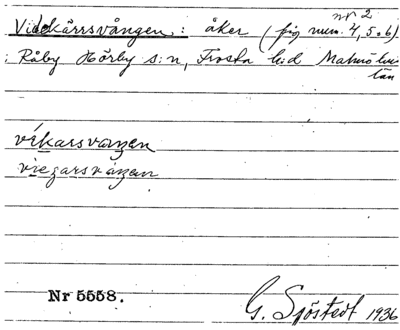 nr 2
Viddkärrsvången: åker (fig num. 4, 5 o. 6)
i Råby Hörby s:n, Frosta h:d Malmöhus
län
víkarsvaŋen
viegarsvaŋen
Nr 5558.
G. Sjöstedt 1936